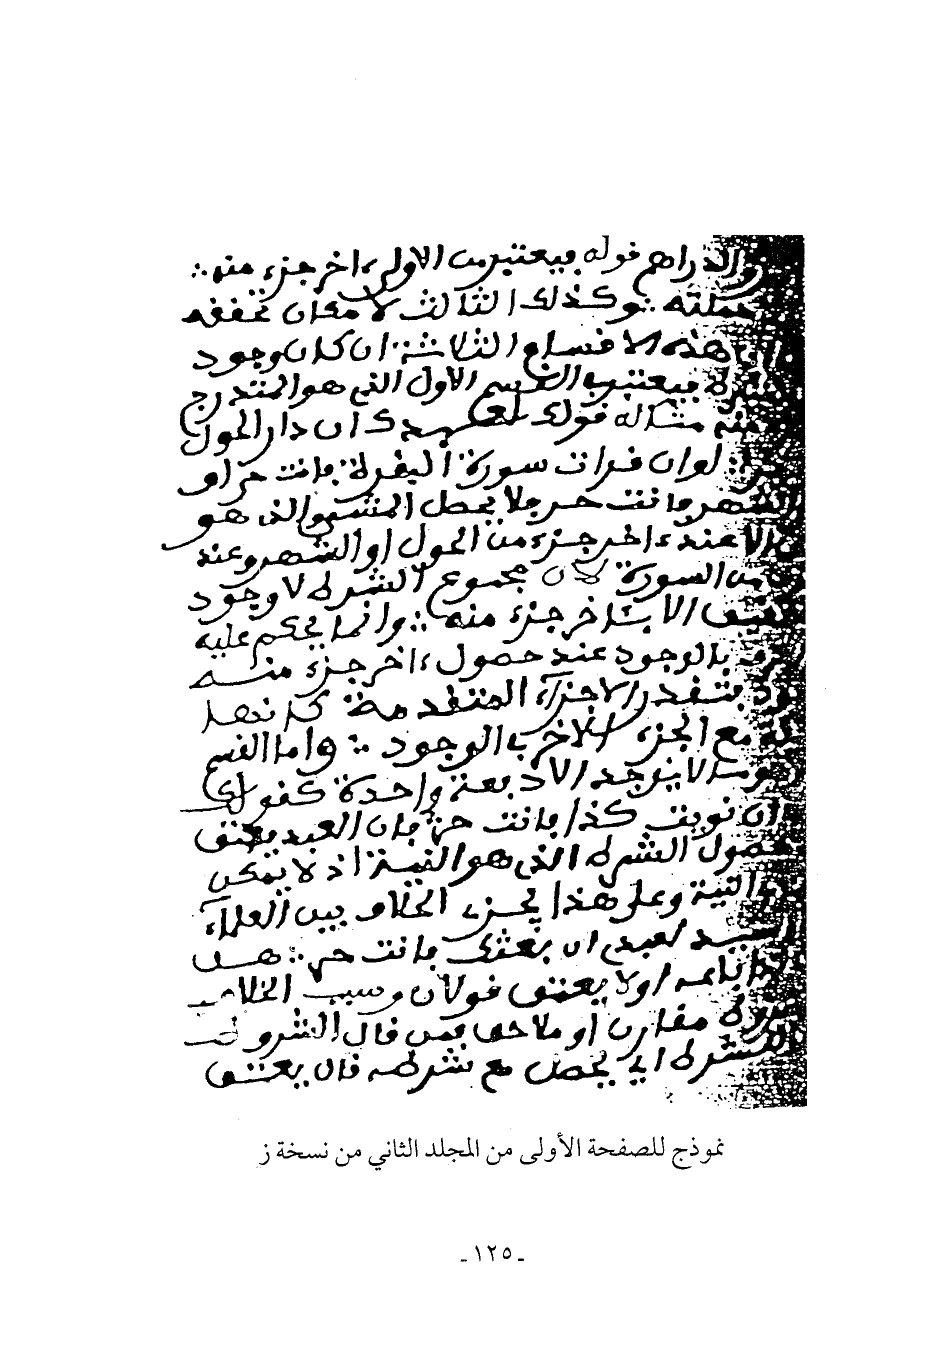 والدراهم قوله فيعتبر من الاول ءاخر جزء منه
جملته وكذلك الثالث لامكان تحققه
هذه الاقسام الثلاثة ان كان وجود
فيعتبر القسم الاول الذي هو المتدرج
مثاله قولك لعبدك ان دار الحول
او ان قرات سورة البقرة فانت حر او
الشهر فانت حر فلا يحصل المشروط الذي هو
الا عند ءاخر جزء من الحول او الشهر وعند
من السورة لان مجموع الشرط لا وجود
الا بآخر جزء منه وانما يحكم عليه
بالوجود عند حصول ءاخر جزء منه
بتقدر الاجزاء المتقدمة كانها
مع الجزء الاخر بالوجود واما القسم
الا يوجد الا دفعة واحدة كقولك
ان نويت كذا فانت حر فان العبد يعتق
حصول الشرط الذي هو النية اذ لا يمكن
النية وعلى هذا يجزء الخلاف بين العلماء
السيد لعبده ان بعتك فانت حر هل
اذا باعه او لا يعتق قولان وسبب الخلاف
مقارن او ملاحق فمن قال المشروط
الشرط اي يحصل مع شرطه قال يعتق
نموذج للصفحة الأولى من المجلد الثاني من نسخة ز
ـ ١٢٥ ـ